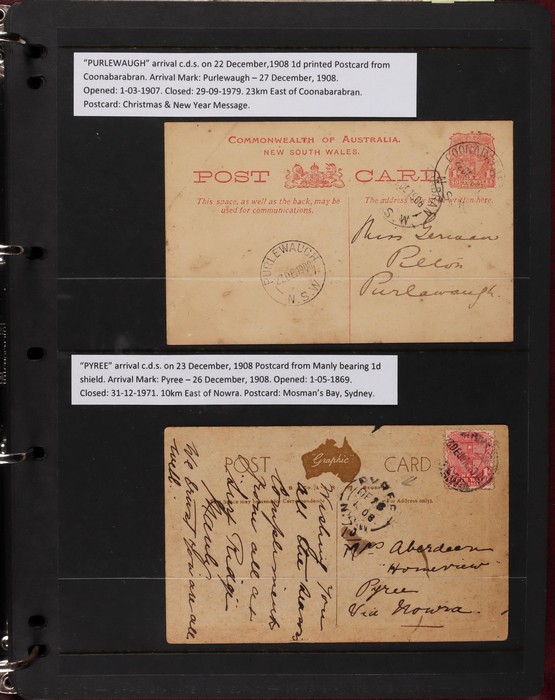 "PURLEWAUGH" arrival c.d.s. on 22 December,1908 1d printed Postcard from
Coonabarabran. Arrival Mark: Purlewaugh – 27 December, 1908.
Opened: 1-03-1907. Closed: 29-09-1979. 23km East of Coonabarabran.
Postcard: Christmas & New Year Message.
COMMONWEALTH OF AUSTRALIA.
NEW SOUTH WALES.
POST CARD
This space, as well as the back, may be
used for communications.
The address
Miss
Purlawaugh
PURLEWAUGH
N.S.W
"PYREE" arrival c.d.s. on 23 December, 1908 Postcard from Manly bearing 1d
shield. Arrival Mark: Pyree – 26 December, 1908. Opened: 1-05-1869.
Closed: 31-12-1971. 10km East of Nowra. Postcard: Mosman's Bay, Sydney.
POST Graphic CARD
PYREE
DE 26
08
N.S.W
Wishing you
all the
Compliments
from all at
Ridge
Manly
We trust you are all
well.
Aberdeen
"Homeview"
Pyree
Via Nowra.